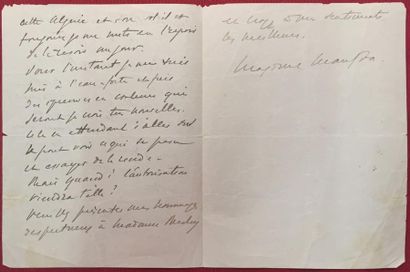 cette Algérie et son soleil et
toujours je me mets en l'espoir
de la revoir un jour.
Pour l'instant je me suis
mis à l'eau-forte et puis
des en couleurs qui
seront je crois très nouvelles.
Cela en attendant d'aller sur
le pont voir ce qui se passe
et essayer de le rendre.
Mais quand? l'autorisation
viendra t'elle?
Veuillez présenter mes hommages
respectueux à Madame
et croyez à mes sentiments
les meilleurs.
Maxime Maufra.